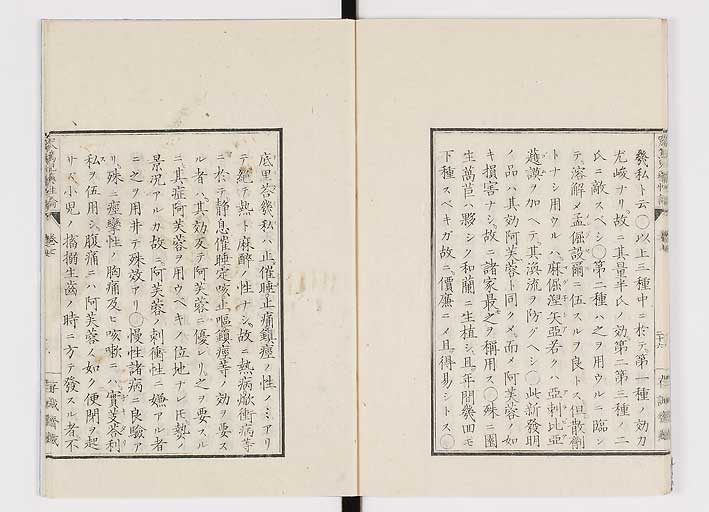 幾私ト云○以上三種中ニ於テ第一種ノ効力
尤峻ナリ故ニ其量半氏ノ効第二第三種ノ二
氏ニ敵スベシ○第二種ハ之ヲ用ウルニ臨ン
テ溶解メ孟倔設爾ニ伍スルヲ良トス但散劑
トナシ用ウルハ麻倔涅矢亞若クハ亞刺比亞
護謨ヲ加ヘテ其渙流ヲ防グヘシ○此新發明
ノ品ハ其効阿芙蓉ト同クメ而メ阿芙蓉ノ如
キ損害ナシ故ニ諸家最之ヲ稱用ス○殊ニ園
生萵苣ハ夥シク和蘭ニ生植シ且年間幾回モ
下種スベキガ故ニ價廉ニメ且得易シトス○
底里荅幾私ハ止催睡止痛鎮痙ノ性ノミアリ
テ絶テ熱ト麻醉ノ性ナシ故ニ熱病焮衝病等
ニ於テ静息催睡定咳止嘔鎮痙等ノ効ヲ要ス
ル者ハ其効反テ阿芙蓉ニ優レリ之ヲ要スル
ニ其症阿芙蓉ヲ用ウベキノ位地ナレ𪜈熱ノ
景況アルカ故ニ阿芙蓉ノ刺衝性ニ嫌アル者
ニ之ヲ用井テ殊效アリ○慢性諸病ニ良驗ア
リ殊ニ痙攣性ノ胸痛及ヒ咳嗽ニハ實芰荅利
私ヲ伍用シ腹痛ニハ阿芙蓉ノ如ク便閉ヲ起
サス小兒ノ搐搦生齒ノ時ニ方テ發スル者不
卷七